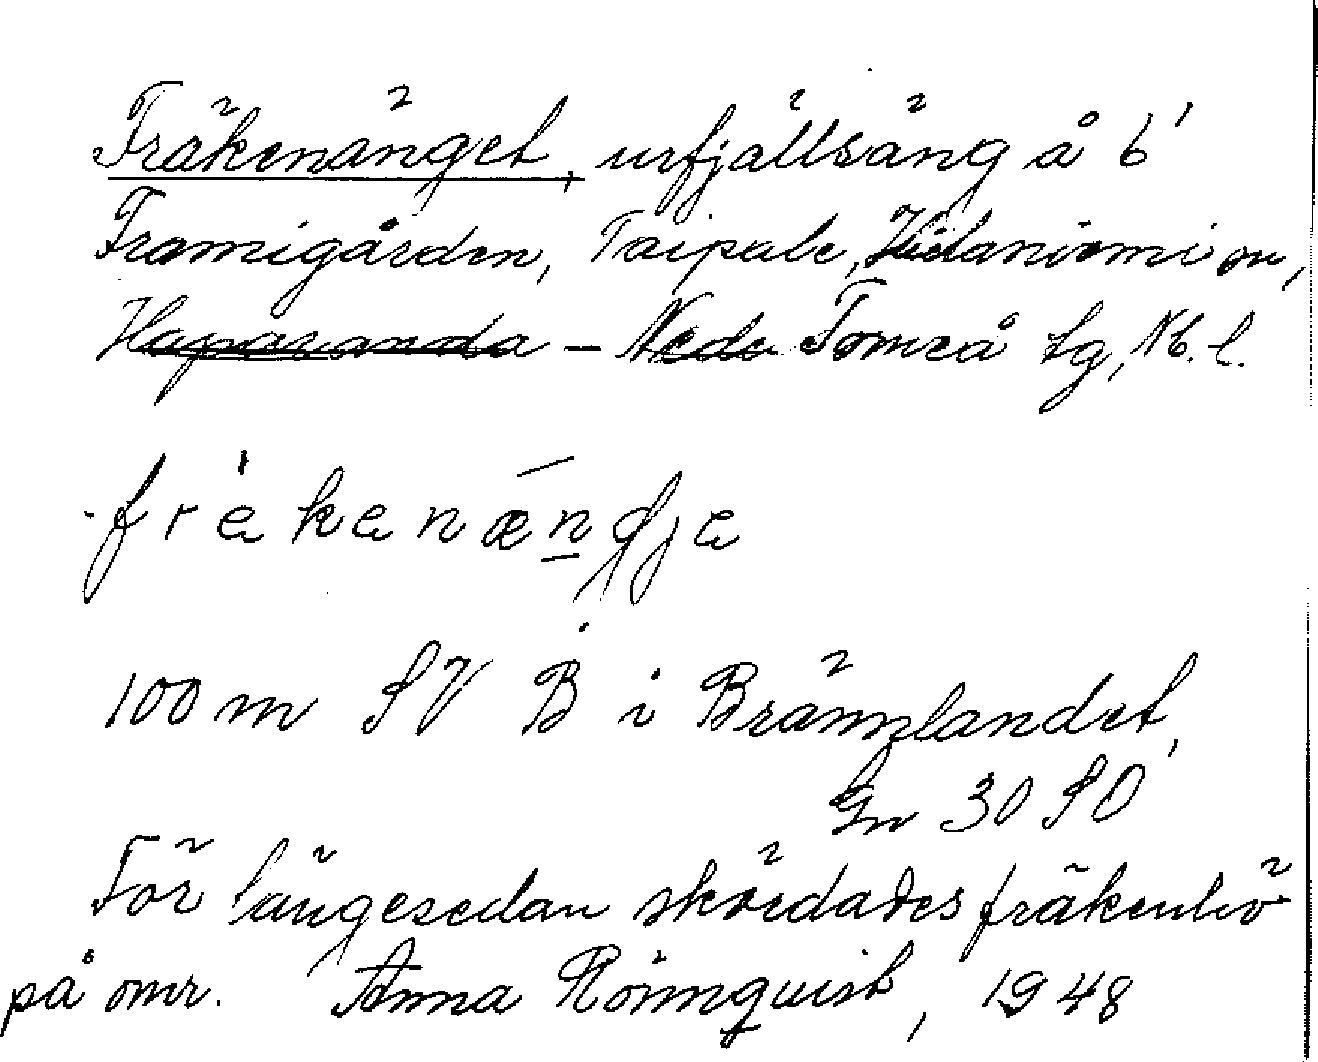 Fräkenänget, urfjällsäng å 6'
Framigården, Taipale, Hietaniemi sn,
Haparanda – Nedr Torneå tg, Nb. l.
frèkenændje
100 m SV B i Brännlandet,
Gn 30 SO
För längesedan skördades fräkenhö
på omr. Anna Rönnquist, 1948